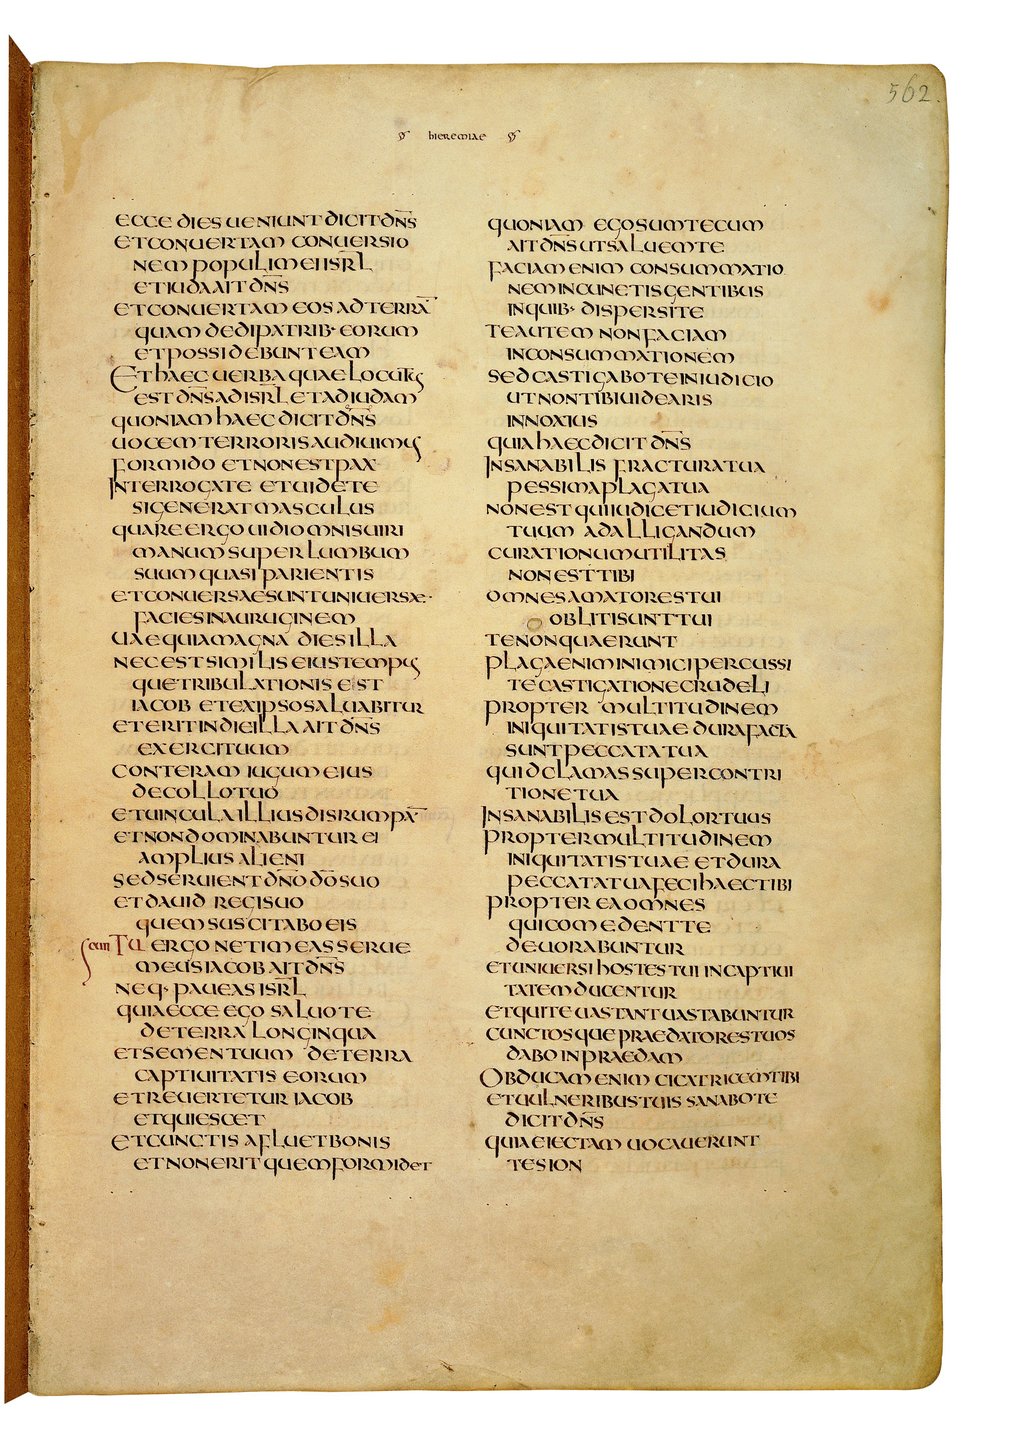 562.
hieremiae
ECCE DIES UENIUNT DICIT DN̅S
ET CONUERTAM CONUERSIO
NEM POPULI MEI ISR̅L
ET IUDA AIT DN̅S
ET CONUERTAM EOS AD TERRA̅
QUAM DEDI PATRIB· EORUM
ET POSSIDEBUNT EAM
ET HAEC UERBA QUAE LOCUTUS
EST DN̅S AD ISR̅L ET AD IUDAM
QUONIAM HAEC DICIT DN̅S
UOCEM TERRORIS AUDIUIMUS
FORMIDO ET NON EST PAX
INTERROGATE ET UIDETE
SI GENERAT MASCULUS
QUARE ERGO UIDI OMNIS UIRI
MANUM SUPER LUMBUM
SUUM QUASI PARIENTIS
ET CONUERSAE SUNT UNIUERSAE·
FACIES IN AURUGINEM
UAE QUIA MAGNA DIES ILLA
NEC EST SIMILIS EIUS TEMPUS
QUE TRIBULATIONIS EST
IACOB ET EX IPSO SALUABITUR
ET ERIT IN DIE ILLA AIT DN̅S
EXERCITUUM
CONTERAM IUGUM EIUS
DE COLLO TUO
ET UINCULA ILLIUS DISRUMPA̅
ET NON DOMINABUNTUR EI
AMPLIUS ALIENI
SED SERUIENT DN̅O DO̅ SUO
ET DAUID REGI SUO
QUEM SUSCITABO EIS
TU ERGO NE TIMEAS SERUE
MEUS IACOB AIT DN̅S
NEQ· PAUEAS ISR̅L
QUIA ECCE EGO SALUO TE
DE TERRA LONGINQUA
ET SEMEN TUUM DE TERRA
CAPTIUITATIS EORUM
ET REUERTETUR IACOB
ET QUIESCET
ET CUNCTIS AFLUET BONIS
ET NON ERIT QUEM FORMIDET
QUONIAM EGO SUM TECUM
AIT DN̅S UT SALUEM TE
FACIAM ENIM CONSUMMATIO
NEM IN CUNCTIS GENTIBUS
IN QUIB· DISPERSI TE
TE AUTEM NON FACIAM
IN CONSUMMATIONEM
SED CASTIGABO TE IN IUDICIO
UT NON TIBI UIDEARIS
INNOXIUS
QUIA HAEC DICIT DN̅S
INSANABILIS FRACTURA TUA
PESSIMA PLAGA TUA
NON EST QUI IUDICET IUDICIUM
TUUM AD ALLIGANDUM
CURATIONUM UTILITAS
NON EST TIBI
OMNES AMATORES TUI
OBLITI SUNT TUI
TE NON QUAERUNT
PLAGA ENIM INIMICI PERCUSSI
TE CASTIGATIONE CRUDELI
PROPTER MULTITUDINEM
INIQUITATIS TUAE DURA FACTA
SUNT PECCATA TUA
QUID CLAMAS SUPER CONTRI
TIONE TUA
INSANABILIS EST DOLOR TUUS
PROPTER MULTITUDINEM
INIQUITATIS TUAE ET DURA
PECCATA TUA FECI HAEC TIBI
PROPTER EA OMNES
QUI COMEDENT TE
DEUORABUNTUR
ET UNIUERSI HOSTES TUI IN CAPTIUI
TATEM DUCENTUR
ET QUI TE UASTANT UASTABUNTUR
CUNCTOSQUE PRAEDATORES TUOS
DABO IN PRAEDAM
OBDUCAM ENIM CICATRICEM TIBI
ET UULNERIBUS TUIS SANABO TE
DICIT DN̅S
QUIA EIECTAM UOCAUERUNT
TE SION